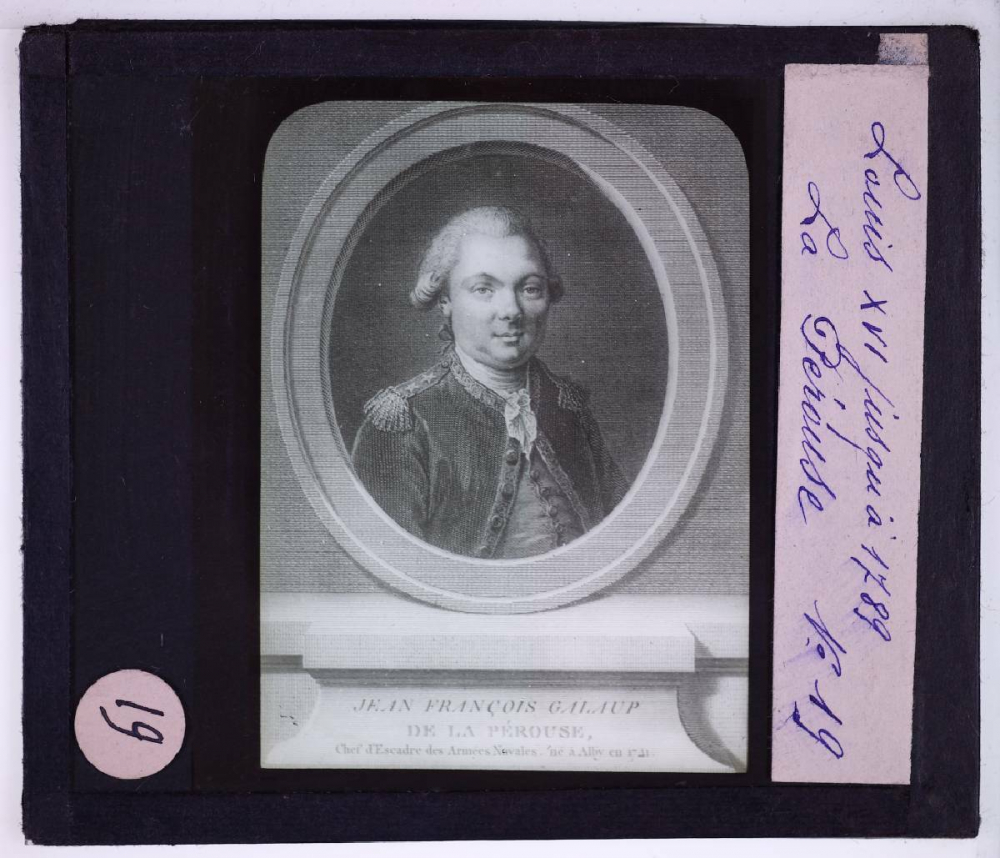 JEAN FRANÇOIS GALAUP
DE LA PÉROUSE,
Chef d'Escadre des Armées Navales, né à Alby en 1741.
Louis XVI jusqu'à 1789
La Pérouse No 19
19